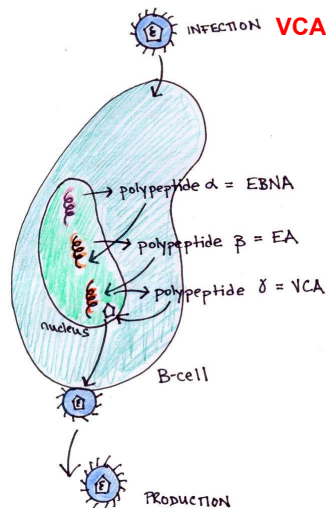 INFECTION VCA
polypeptide α = EBNA
polypeptide β = EA
polypeptide γ = VCA
nucleus
B-cell
PRODUCTION